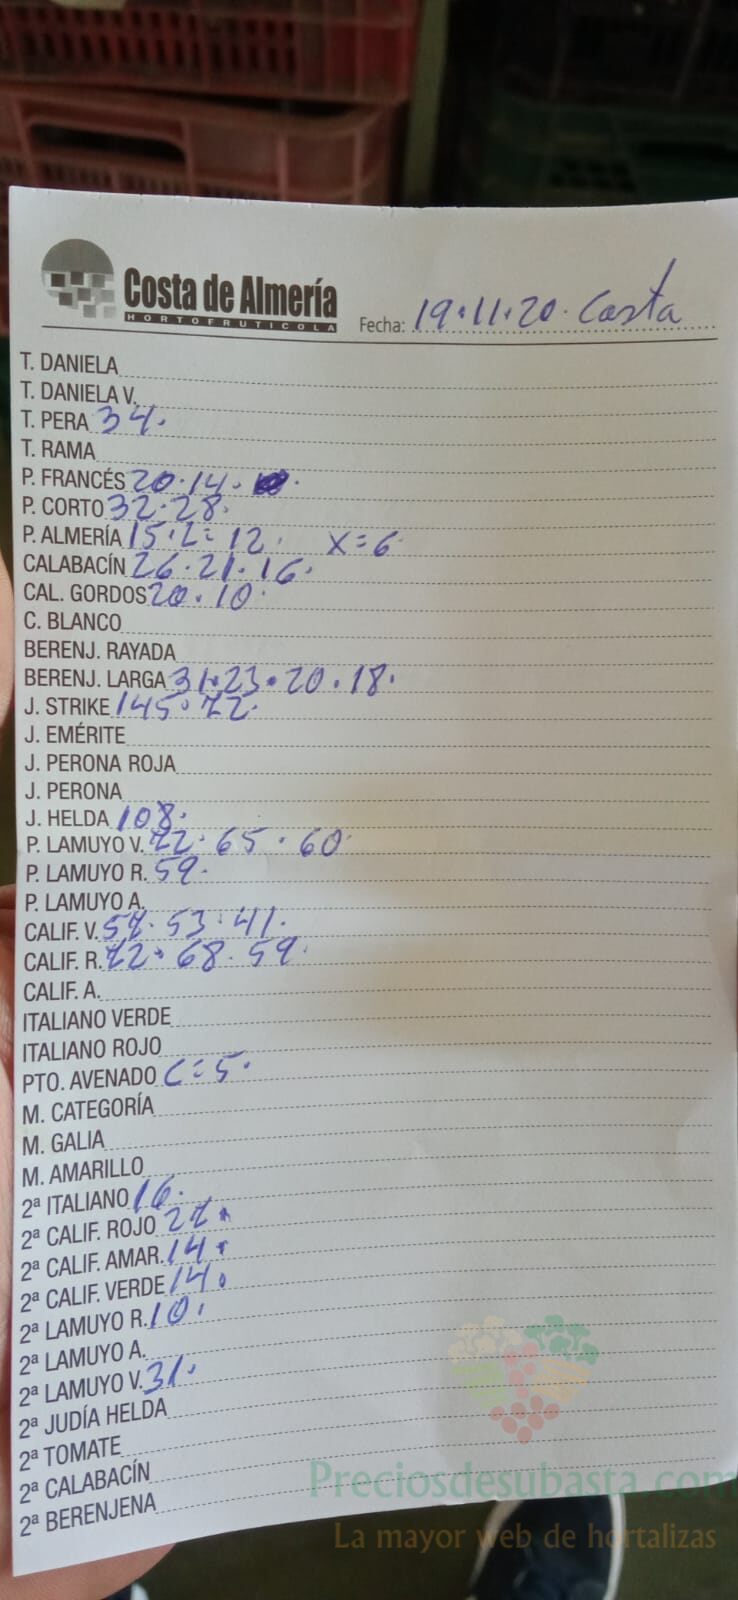 Costa de Almería
HORTOFRUTICOLA
Fecha: 19.11.20. Costa
T. DANIELA
T. DANIELA V.
T. PERA 34.
T. RAMA
P. FRANCÉS 20.14.
P. CORTO 32.28.
P. ALMERÍA 15.2=12. X=6
CALABACÍN 26.21.16.
CAL. GORDOS 20.10.
C. BLANCO
BERENJ. RAYADA
BERENJ. LARGA 31.23.20.18.
J. STRIKE 145.72.
J. EMÉRITE
J. PERONA ROJA
J. PERONA
J. HELDA 108.
P. LAMUYO V. 72.65.60.
P. LAMUYO R. 59.
P. LAMUYO A.
CALIF. V. 57.53.41.
CALIF. R. 72.68.59.
CALIF. A.
ITALIANO VERDE
ITALIANO ROJO
PTO. AVENADO C=5.
M. CATEGORÍA
M. GALIA
M. AMARILLO
2ª ITALIANO 16.
2ª CALIF. ROJO 27.
2ª CALIF. AMAR. 14.
2ª CALIF. VERDE 14.
2ª LAMUYO R. 10.
2ª LAMUYO A.
2ª LAMUYO V. 31.
2ª JUDÍA HELDA
2ª TOMATE
2ª CALABACÍN
2ª BERENJENA
Preciosdesubasta.com
La mayor web de hortalizas